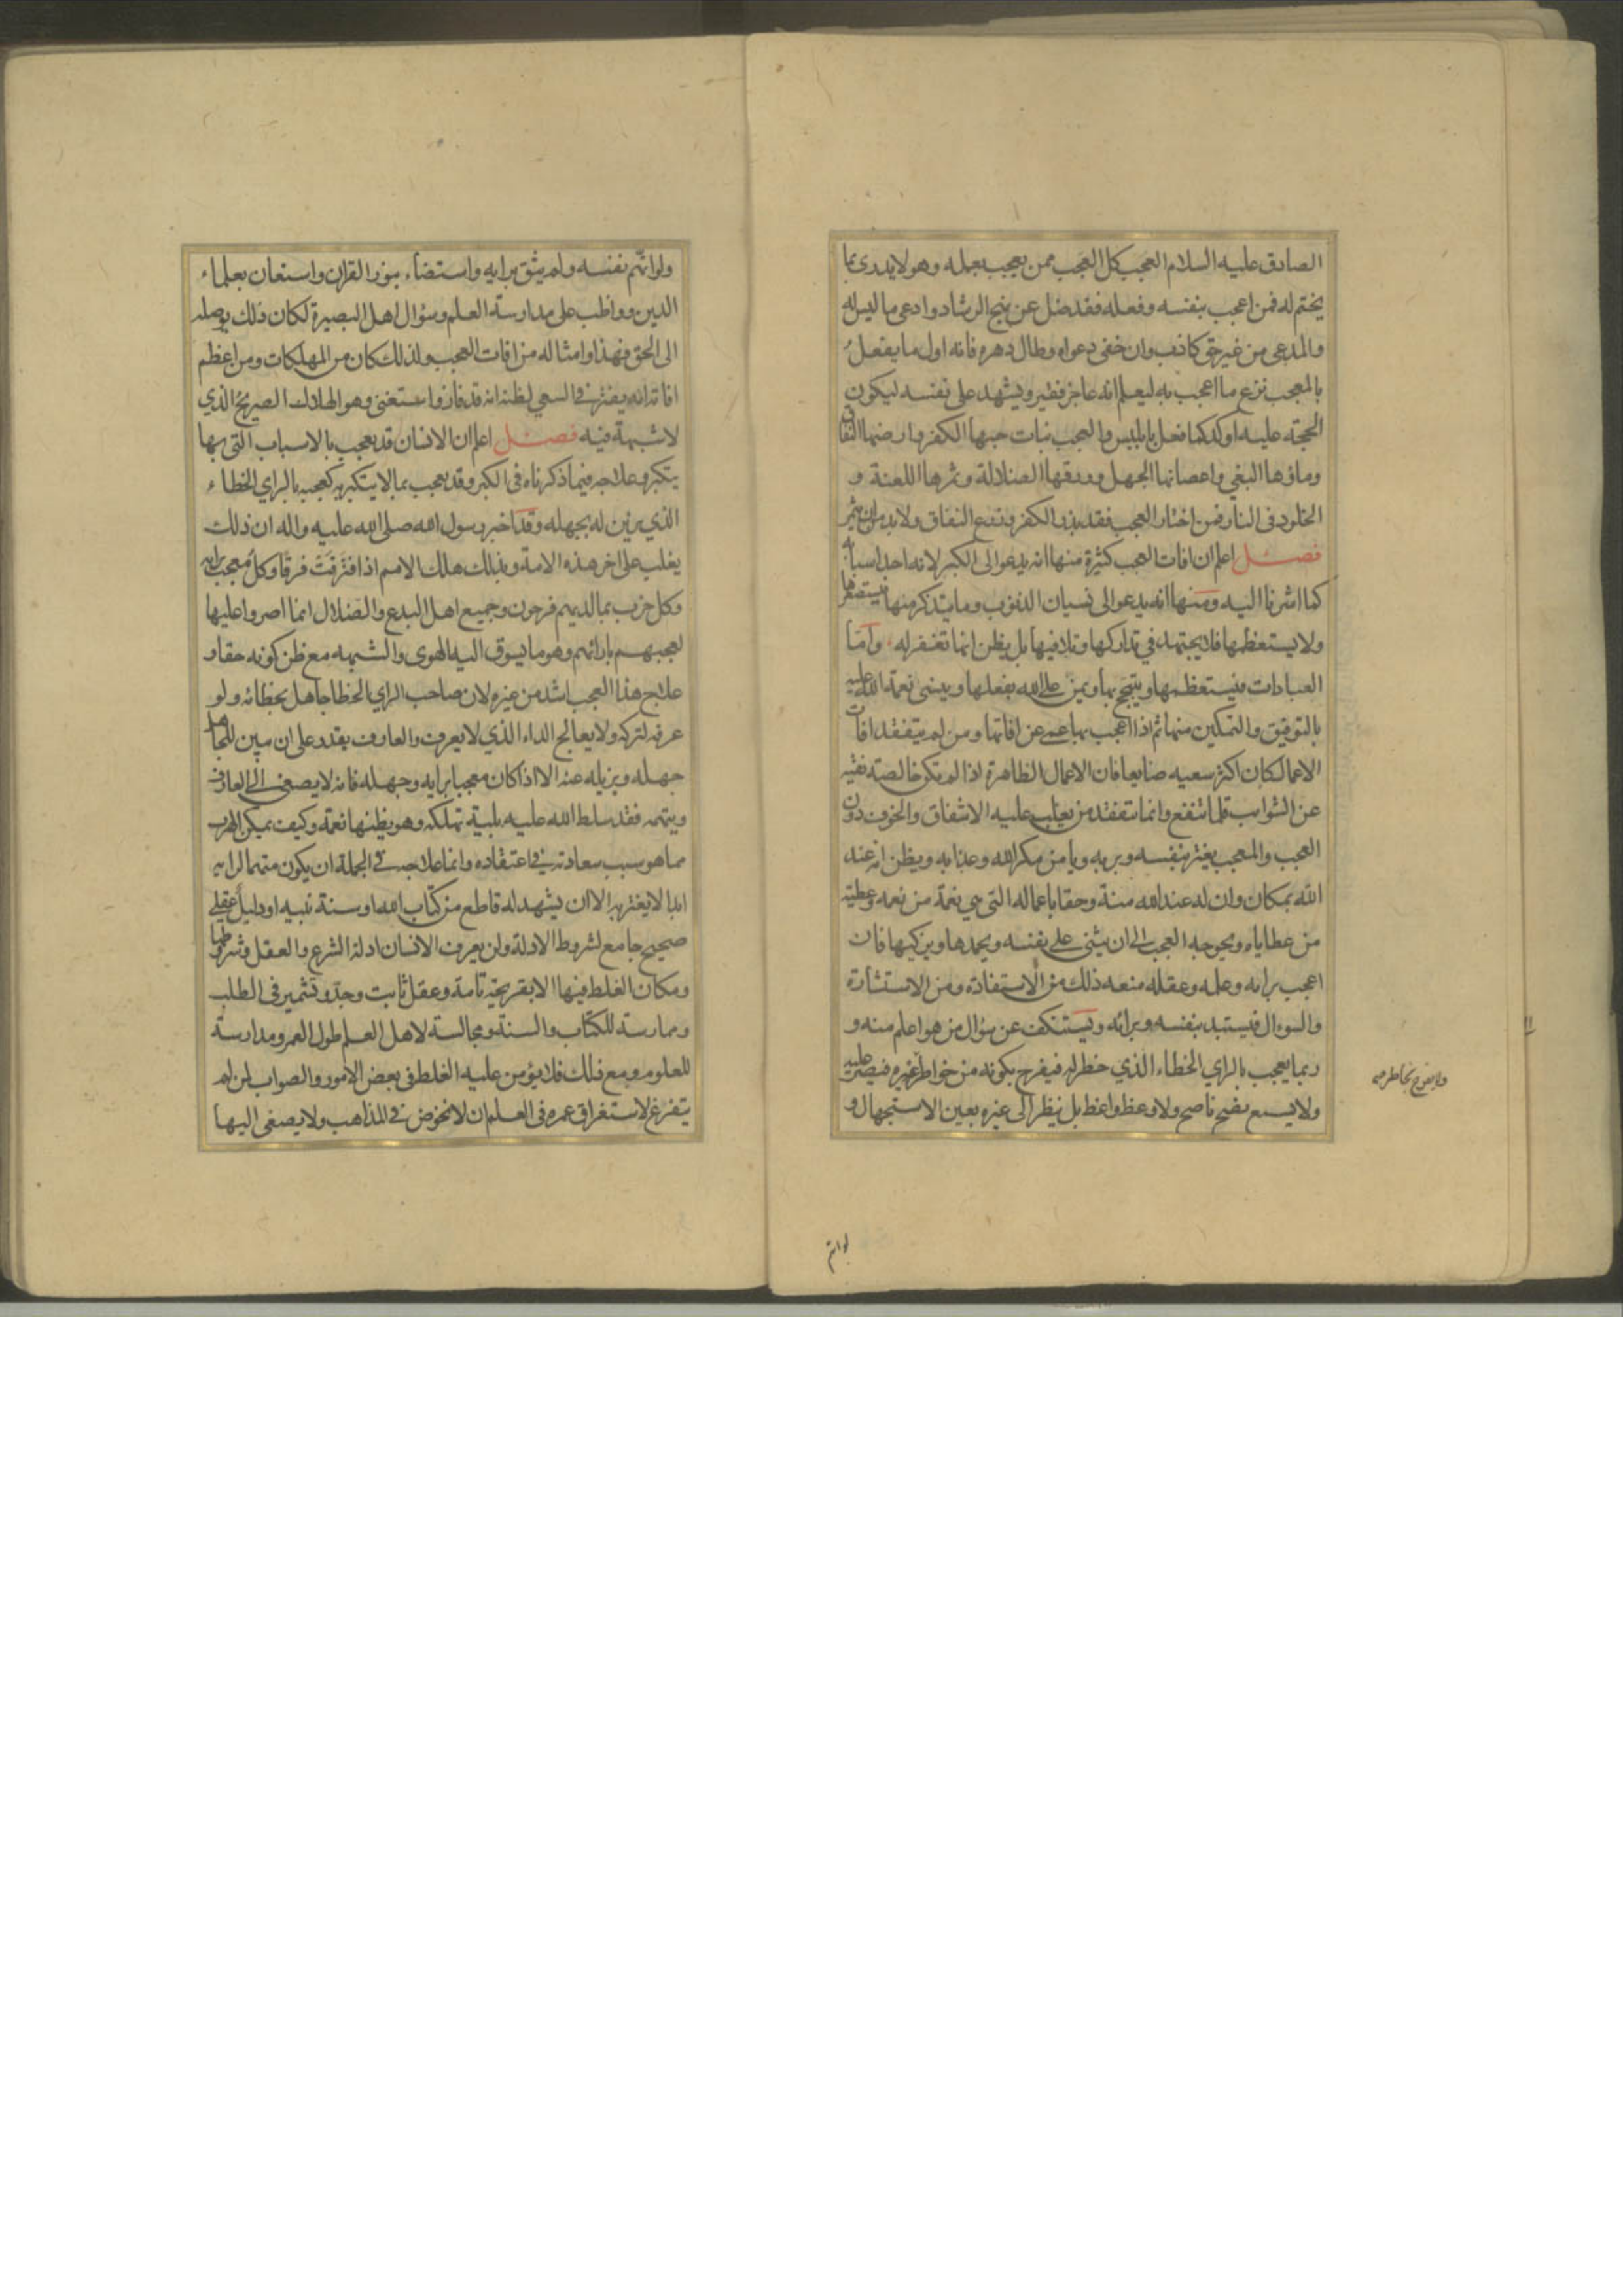 الصادق عليه السلام العجب كل العجب ممن يعجب بعمله وهو لا يدرى بما
يختم له فمن اعجب بنفسه وفعله فقد ضل عن نهج الرشاد وادعى ما ليس له
والمدعى من غير حق كاذب وان خفى دعواه وطال دهره فانه اول ما يفعل
بالمعجب نزع ما اعجب به ليعلم انه عاجز فقير ويشهد على نفسه ليكون
الحجة عليه اوكد كما فعل بابليس والعجب نبات حبها الكفر وارضها النفاق
وماؤها البغي واغصانها الجهل وورقها الضلالة وثمرها اللعنة و
الخلود فى النار فمن اختار العجب فقد بذر الكفر وزرع النفاق ولا بد من ان يثمر
فصل اعلم ان افات العجب كثيرة منها انه يدعو الى الكبر لانه احد اسبابه
كما اشرنا اليه ومنها انه يدعو الى نسيان الذنوب وما يتذكر منها فيستصغرها
ولا يستعظمها فلا يجتهد في تداركها وتلافيها بل يظن انها تغفر له واما
العبادات فيستعظمها ويتبجح بها ويمن على الله بفعلها وينسى نعمة الله عليه
بالتوفيق والتمكين منها ثم اذا اعجب بها عمى عن افاتها ومن لم يتفقد افات
الاعمال كان اكثر سعيه ضايعا فان الاعمال الظاهرة اذا لم تكن خالصة نقية
عن الشوايب قلما تنفع وانما يتفقد من يغلب عليه الاشفاق والخوف دون
العجب والمعجب يغتر بنفسه وبربه ويامن مكر الله وعذابه ويظن انه عند
الله بمكان وان له عند الله منة وحقا باعماله التى هي نعمة من نعمه وعطية
من عطاياه ويحوجه العجب الى ان يثنى على نفسه ويحمدها ويزكيها فان
اعجب برايه وعلمه وعقله منعه ذلك من الاستفادة ومن الاستشارة
والسوال فيستبد بنفسه وبرائه ويستنكف عن سؤال من هو اعلم منه و
ربما يعجب بالراي الخطاء الذي خطر له فيفرح بكونه من خواطر غيره فيصر عليه
ولا يسمع نصح ناصح ولا وعظ واعظ بل ينظر الى غيره بعين الاستجهال و
ولا يفرح بخاطر
لواتهم
ولو اتهم نفسه ولم يثق برايه واستضاء بنور القران واستعان بعلماء
الدين وواظب على مدارسة العلم وسؤال اهل البصيرة لكان ذلك يوصله
الى الحق فهذا وامثاله من افات العجب ولذلك كان من المهلكات ومن اعظم
افاته انه يفتر فى السعي لظنه انه قد فاز واستغنى وهو الهلاك الصريح الذي
لا شبهة فيه فصل اعلم ان الانسان قد يعجب بالاسباب التى بها
يتكبر وعلاجه فيما ذكرناه فى الكبر وقد يعجب بما لا يتكبر به كعجبه بالراي الخطاء
الذي يزين له بجهله وقد اخبر رسول الله صلى الله عليه واله ان ذلك
يغلب على اخر هذه الامة وبذلك هلك الامم اذ افترقت فرقا وكل معجب برايه
وكل حزب بما لديهم فرحون وجميع اهل البدع والضلال انما اصروا عليها
لعجبهم بارائهم وهو ما يسوق اليه الهوى والشبهه مع ظن كونه حقا و
علاج هذا العجب اشد من غيره لان صاحب الراي الخطا جاهل بخطائه ولو
عرفه لتركه ولا يعالج الداء الذي لا يعرف والعارف يقدر على ان يبين للجاهل
جهله ويزيله عنه الا اذا كان معجبا برايه وجهله فانه لا يصغى الى العارف
ويتهمه فقد سلط الله عليه بلية تهلكه وهو يظنها نعمة وكيف يمكن الهرب
مما هو سبب سعادته فى اعتقاده وانما علاجه فى الجملة ان يكون متهما لرايه
ابدا لا يغتر به الا ان يشهد له قاطع من كتاب الله او سنة نبيه او دليل عقلي
صحيح جامع لشروط الادلة ولن يعرف الانسان ادلة الشرع والعقل وشروطها
ومكان الغلط فيها الا بقريحة تامة وعقل ثابت وجد وتشمير فى الطلب
وممارسة للكتاب والسنة ومجالسة لاهل العلم طول العمر ومدارسة
للعلوم ومع ذلك فلا يؤمن عليه الغلط فى بعض الامور والصواب لمن لم
يتفرغ لاستغراق عمره فى العلم ان لا يخوض فى المذاهب ولا يصغى اليها